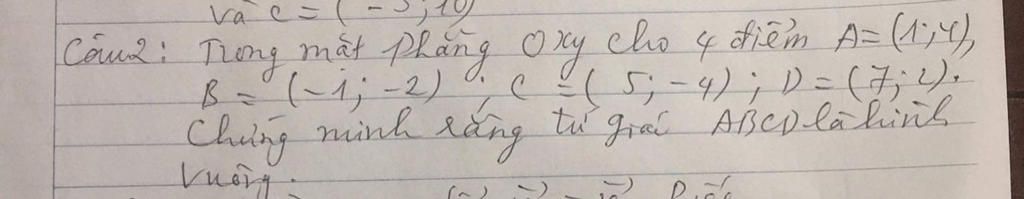 và c = (-5; 10)
Câu2: Trong mặt phẳng Oxy cho 4 điểm A=(1;4),
B = (-1; -2) ; C = ( 5; -4) ; D = (7; 2).
Chứng minh rằng tứ giác ABCD là hình
Vuông.